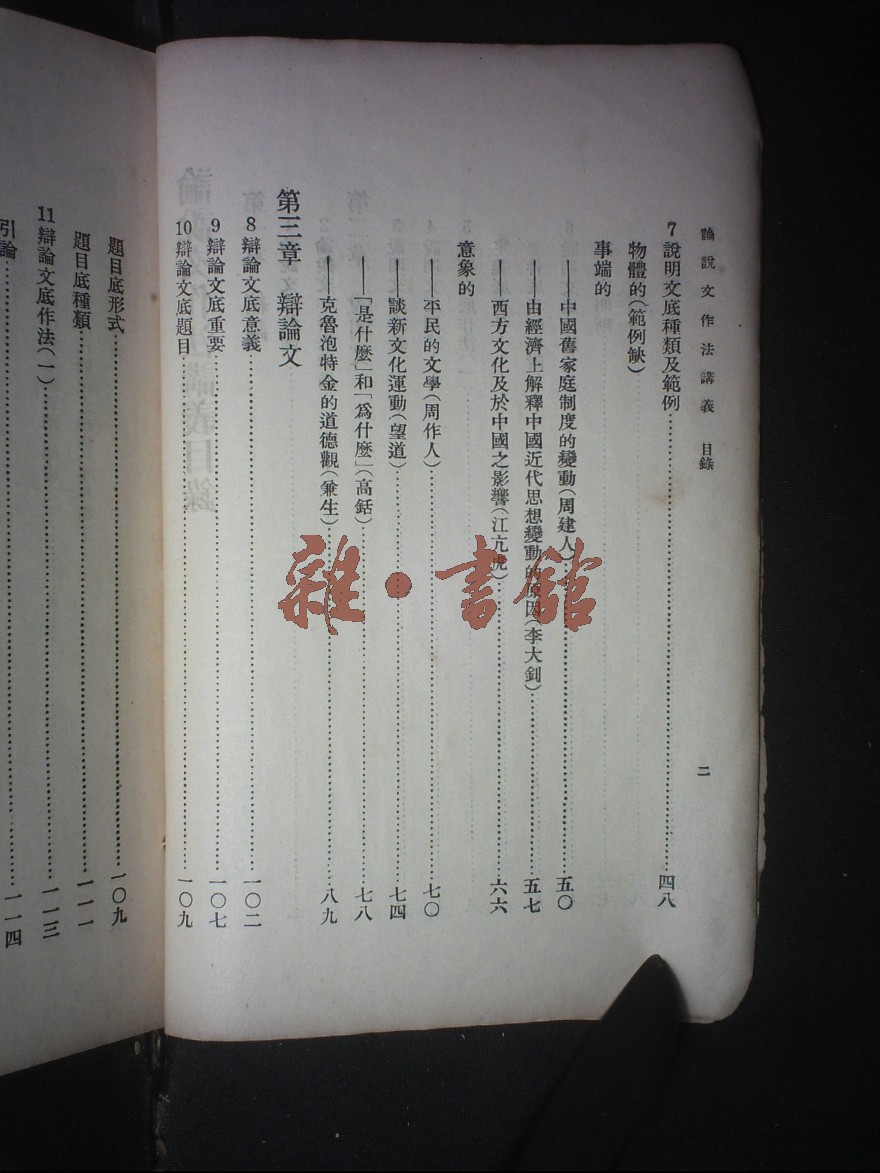 論說文作法講義　目錄
二
7 說明文底種類及範例……四八
物體的(範例缺)
事端的
——中國舊家庭制度的變動(周建人)……五〇
——由經濟上解釋中國近代思想變動的原因(李大釗)……五七
——西方文化及於中國之影響(江亢虎)……六六
意象的
——平民的文學(周作人)……七〇
——談新文化運動(望道)……七四
——「是什麼」和「爲什麼」(高銛)……七八
——克魯泡特金的道德觀(兼生)……八九
第三章　辯論文
8 辯論文底意義……一〇二
9 辯論文底重要……一〇七
10 辯論文底題目……一〇九
題目底形式……一〇九
題目底種類……一一一
11 辯論文底作法(一)……一一三
引論……一一四
雜·書館